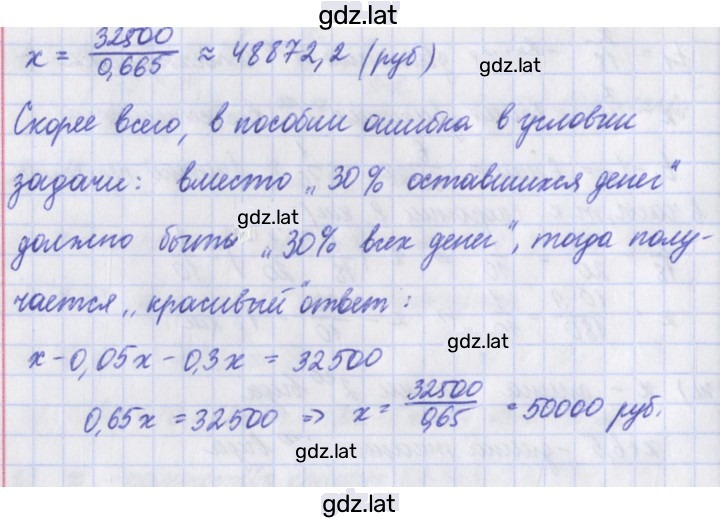 gdz.lat
x = 32500/0,665 ≈ 48872,2 (руб)
gdz.lat
Скорее всего, в пособии ошибка в условии
задачи: вместо „30% оставшихся денег"
gdz.lat
должно быть „30% всех денег", тогда полу-
чается „красивый" ответ:
gdz.lat
x - 0,05x - 0,3x = 32500
0,65x = 32500 => x = 32500/0,65 = 50000 руб.
gdz.lat
gdz.lat